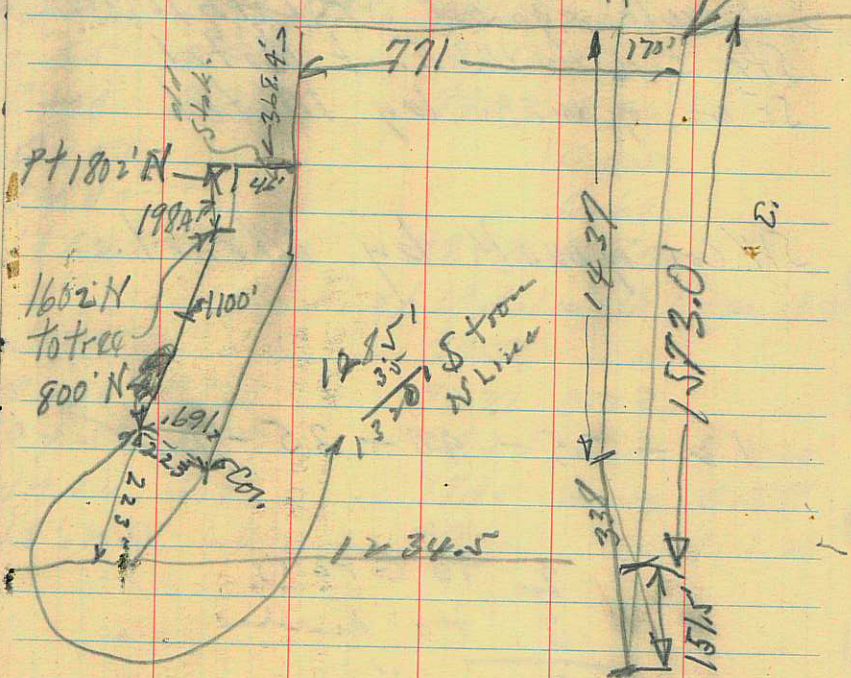 771
170'
368.4'
Stak.
Pt 1802'N
42'
198
1602'N
to tree
1100'
800'N
169'
223
Cor.
223
1285'
35
1320' S from
N Line
1234.5
1437
1573.0'
337
151.5'